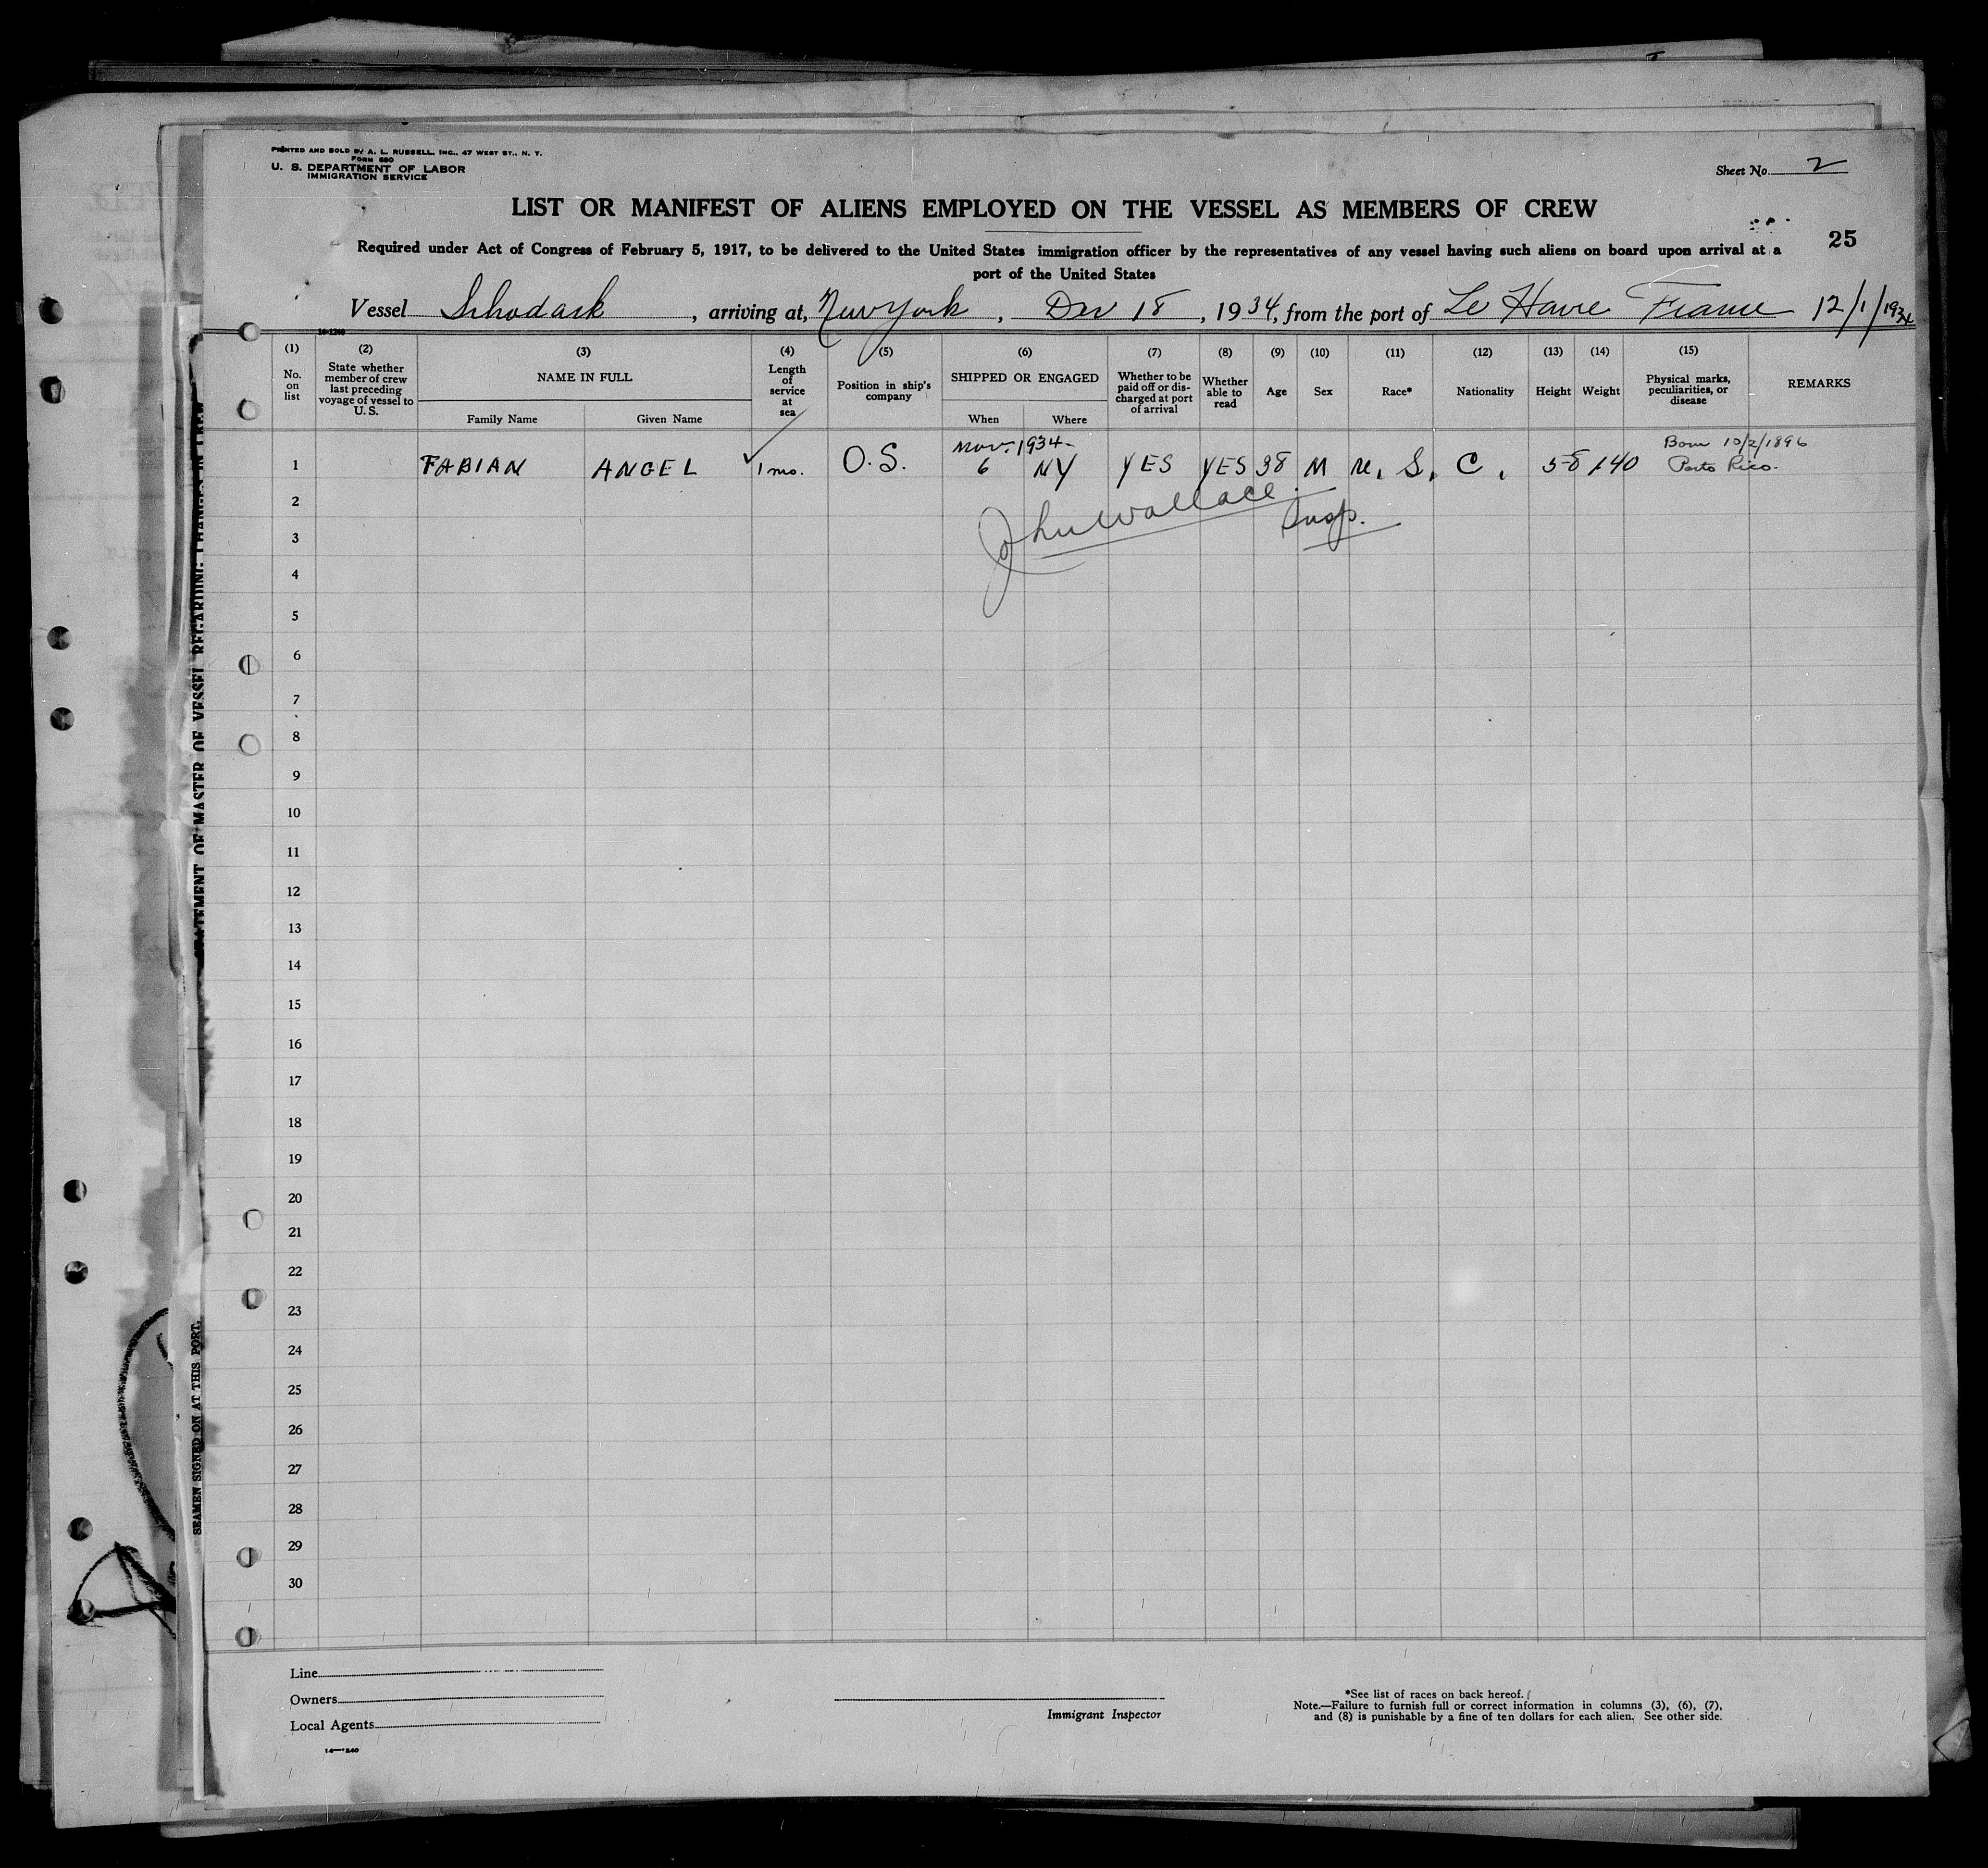 PRINTED AND SOLD BY A. L. RUSSELL, INC., 47 WEST ST., N. Y.
FORM 680
U. S. DEPARTMENT OF LABOR
IMMIGRATION SERVICE
Sheet No. 2
LIST OR MANIFEST OF ALIENS EMPLOYED ON THE VESSEL AS MEMBERS OF CREW
25
Required under Act of Congress of February 5, 1917, to be delivered to the United States immigration officer by the representatives of any vessel having such aliens on board upon arrival at a
port of the United States
Vessel Schodack, arriving at, New York, Dec 18, 1934, from the port of Le Havre France 12/1/1934
14-1240
(1) (2) (3) (4) (5) (6) (7) (8) (9) (10) (11) (12) (13) (14) (15)
No. on list
State whether member of crew last preceding voyage of vessel to U. S.
NAME IN FULL
Family Name Given Name
Length of service at sea
Position in ship's company
SHIPPED OR ENGAGED
When Where
Whether to be paid off or discharged at port of arrival
Whether able to read
Age
Sex
Race*
Nationality
Height
Weight
Physical marks, peculiarities, or disease
REMARKS
Nov. 1934 Born 10/2/1896
1 FABIAN ANGEL 1 mo. O.S. 6 NY YES YES 38 M U. S. C. 5-8 140 Porto Rico.
2
John Wallace Insp.
3
4
5
6
7
8
9
10
11
12
13
14
15
16
17
18
19
20
21
22
23
24
25
26
27
28
29
30
STATEMENT OF MASTER OF VESSEL REGARDING CHANGES IN CREW
SEAMEN SIGNED ON AT THIS PORT.
Line
Owners
Local Agents
14-1240
Immigrant Inspector
*See list of races on back hereof.
Note.—Failure to furnish full or correct information in columns (3), (6), (7),
and (8) is punishable by a fine of ten dollars for each alien. See other side.